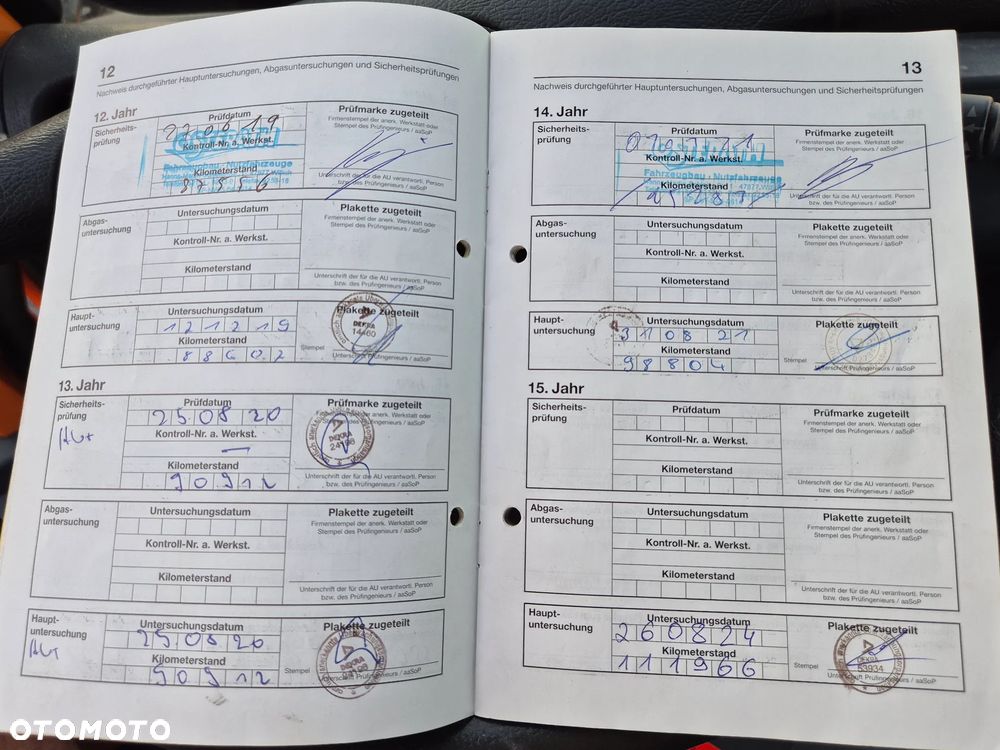 12
Nachweis durchgeführter Hauptuntersuchungen, Abgasuntersuchungen und Sicherheitsprüfungen
12. Jahr
Sicherheits-
prüfung
Prüfdatum
270819
Kontroll-Nr. a. Werkst.
Fahrzeugbau · Nutzfahrzeuge
Kilometerstand
87556
Prüfmarke zugeteilt
Firmenstempel der anerk. Werkstatt oder
Stempel des Prüfingenieurs / aaSoP
Unterschrift der für die AU verantwortl. Person
bzw. des Prüfingenieurs / aaSoP
Abgas-
untersuchung
Untersuchungsdatum
Kontroll-Nr. a. Werkst.
Kilometerstand
Plakette zugeteilt
Firmenstempel der anerk. Werkstatt oder
Stempel des Prüfingenieurs / aaSoP
Unterschrift der für die AU verantwortl. Person
bzw. des Prüfingenieurs / aaSoP
Haupt-
untersuchung
Untersuchungsdatum
121219
Kilometerstand
88602
Plakette zugeteilt
DEKRA
14460
Stempel
Unterschrift Prüfingenieurs / aaSoP
13. Jahr
Sicherheits-
prüfung
Prüfdatum
25.08.20
Kontroll-Nr. a. Werkst.
Kilometerstand
90912
Prüfmarke zugeteilt
Firmenstempel der anerk. Werkstatt oder
Stempel des Prüfingenieurs / aaSoP
DEKRA
24198
Unterschrift der für die AU verantwortl. Person
bzw. des Prüfingenieurs / aaSoP
Abgas-
untersuchung
Untersuchungsdatum
Kontroll-Nr. a. Werkst.
Kilometerstand
Plakette zugeteilt
Firmenstempel der anerk. Werkstatt oder
Stempel des Prüfingenieurs / aaSoP
Unterschrift der für die AU verantwortl. Person
bzw. des Prüfingenieurs / aaSoP
Haupt-
untersuchung
Untersuchungsdatum
25.08.20
Kilometerstand
90912
Plakette zugeteilt
DEKRA
24198
Stempel
Unterschrift Prüfingenieurs / aaSoP
13
Nachweis durchgeführter Hauptuntersuchungen, Abgasuntersuchungen und Sicherheitsprüfungen
14. Jahr
Sicherheits-
prüfung
Prüfdatum
Kontroll-Nr. a. Werkst.
Fahrzeugbau · Nutzfahrzeuge
Kilometerstand
Prüfmarke zugeteilt
Firmenstempel der anerk. Werkstatt oder
Stempel des Prüfingenieurs / aaSoP
Unterschrift der für die AU verantwortl. Person
bzw. des Prüfingenieurs / aaSoP
Abgas-
untersuchung
Untersuchungsdatum
Kontroll-Nr. a. Werkst.
Kilometerstand
Plakette zugeteilt
Firmenstempel der anerk. Werkstatt oder
Stempel des Prüfingenieurs / aaSoP
Unterschrift der für die AU verantwortl. Person
bzw. des Prüfingenieurs / aaSoP
Haupt-
untersuchung
Untersuchungsdatum
310821
Kilometerstand
98804
Plakette zugeteilt
Stempel
Unterschrift Prüfingenieurs / aaSoP
15. Jahr
Sicherheits-
prüfung
Prüfdatum
Kontroll-Nr. a. Werkst.
Kilometerstand
Prüfmarke zugeteilt
Firmenstempel der anerk. Werkstatt oder
Stempel des Prüfingenieurs / aaSoP
Unterschrift der für die AU verantwortl. Person
bzw. des Prüfingenieurs / aaSoP
Abgas-
untersuchung
Untersuchungsdatum
Kontroll-Nr. a. Werkst.
Kilometerstand
Plakette zugeteilt
Firmenstempel der anerk. Werkstatt oder
Stempel des Prüfingenieurs / aaSoP
Unterschrift der für die AU verantwortl. Person
bzw. des Prüfingenieurs / aaSoP
Haupt-
untersuchung
Untersuchungsdatum
260824
Kilometerstand
111966
Plakette zugeteilt
DEKRA
53934
Stempel
Unterschrift Prüfingenieurs / aaSoP
OTOMOTO